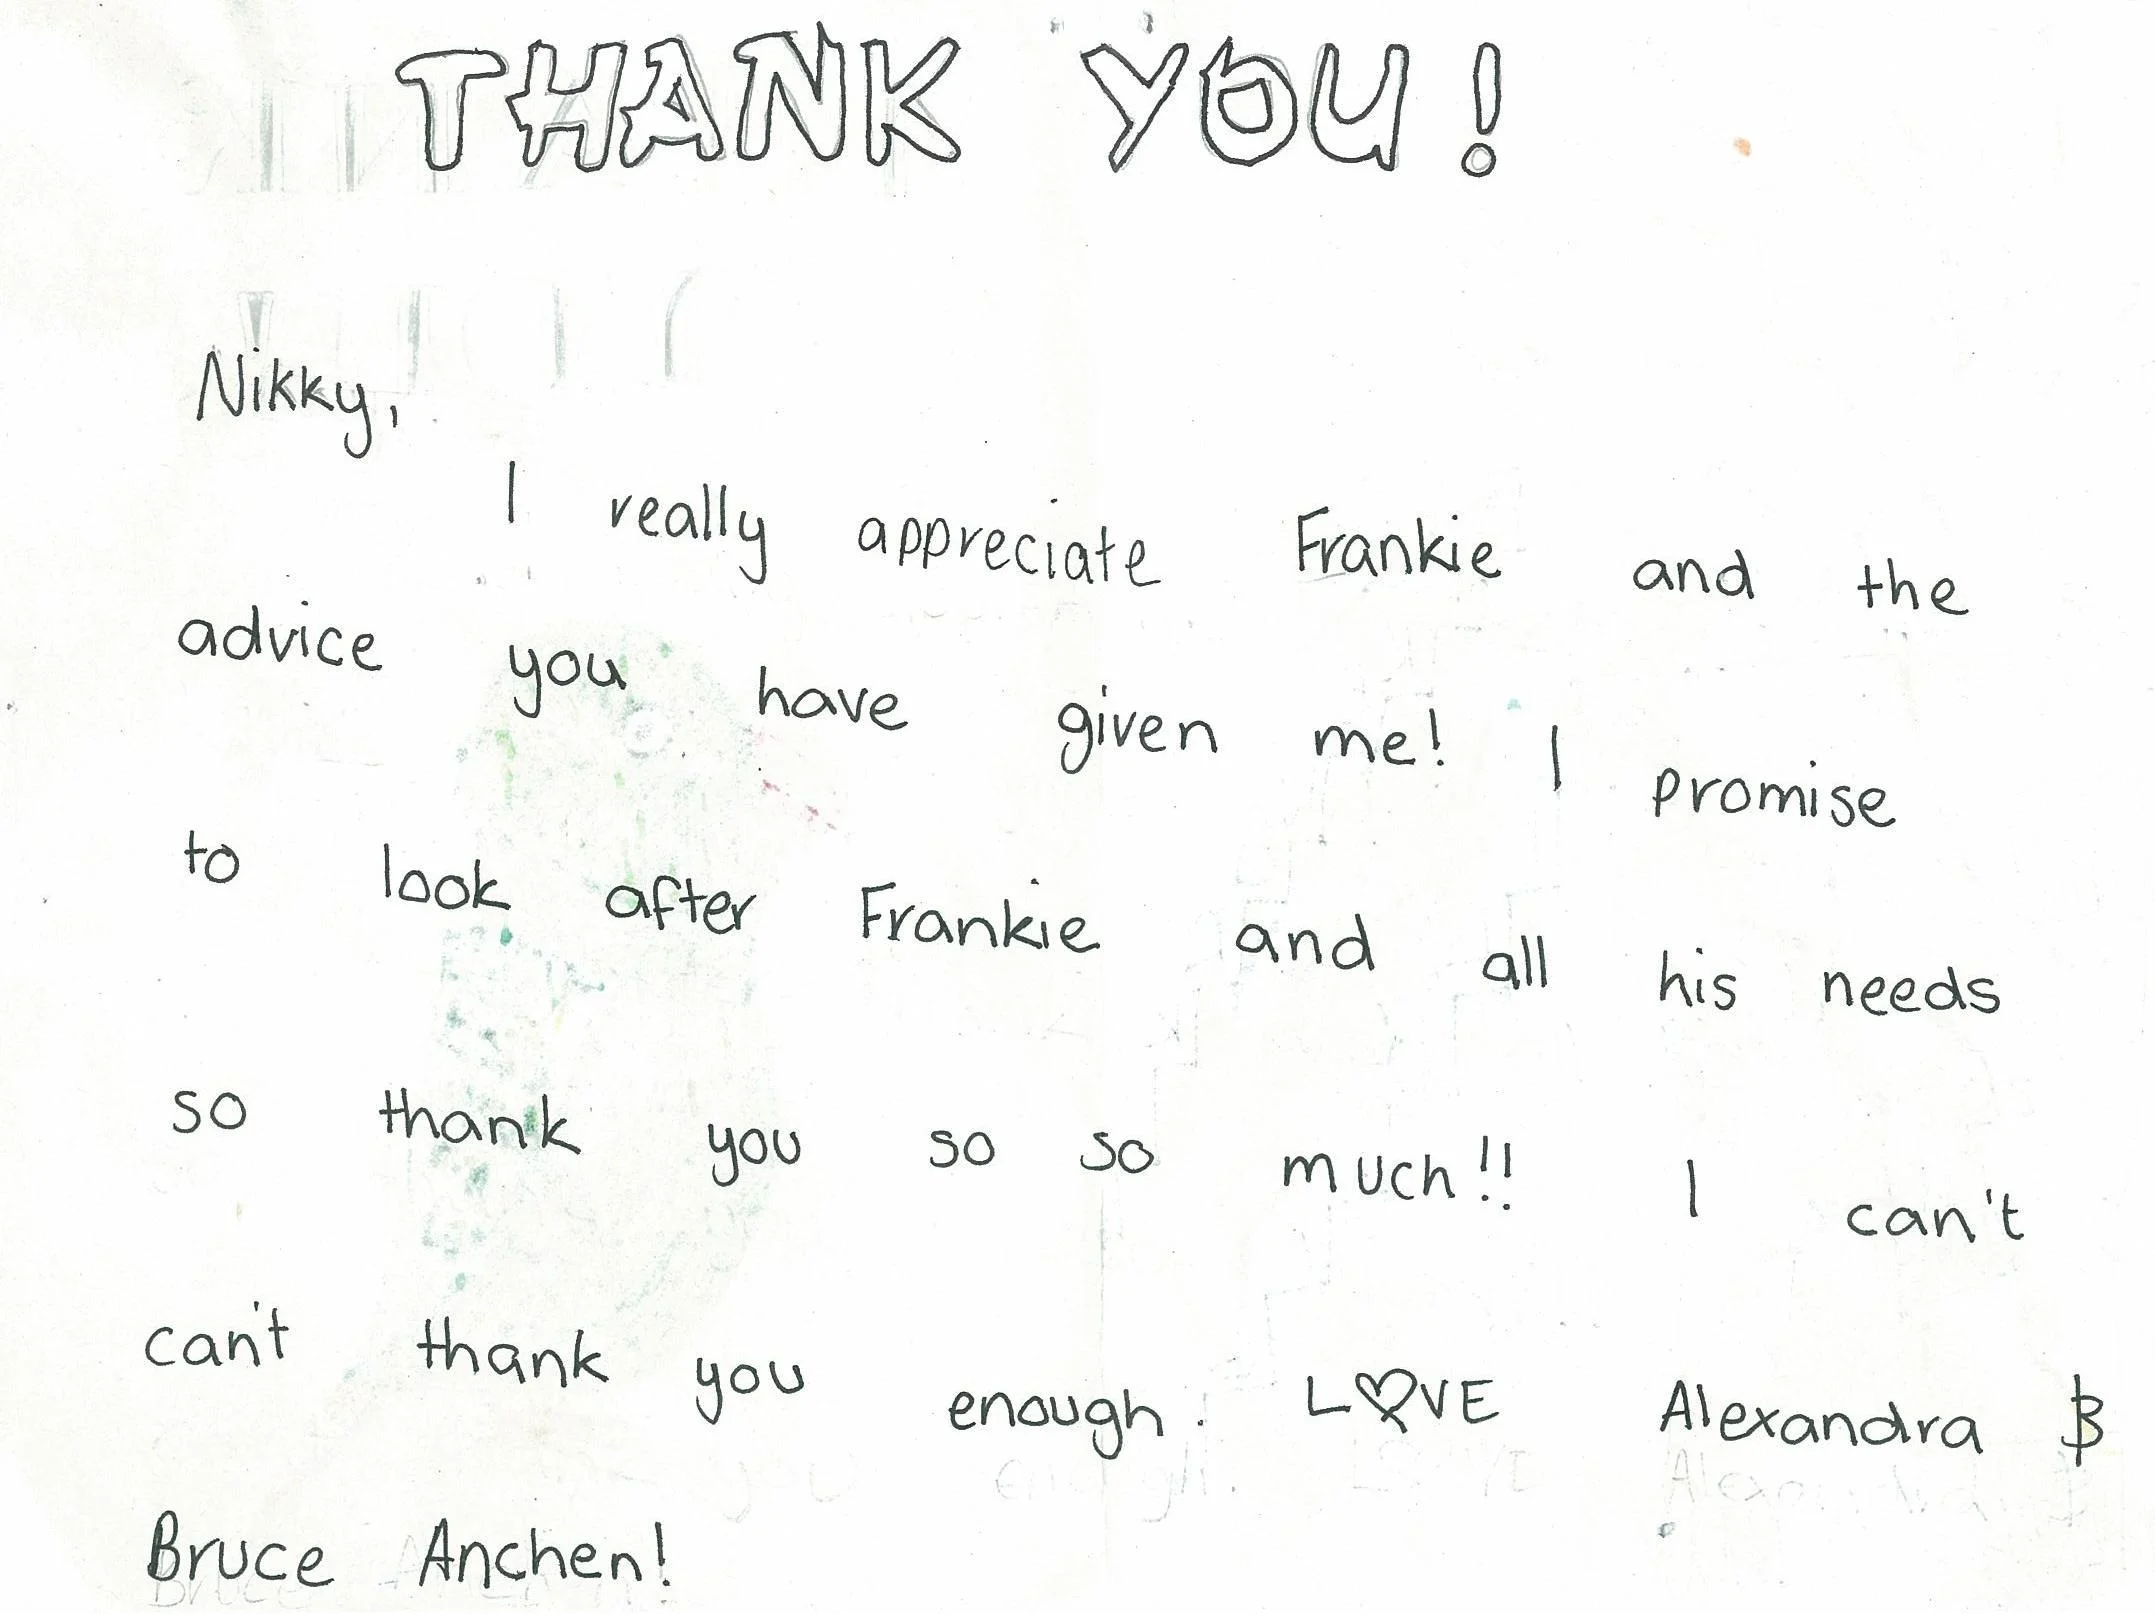 THANK YOU!
Nikky,
I really appreciate Frankie and the
advice you have given me! I promise
to look after Frankie and all his needs
so thank you so so much!! I can't
can't thank you enough. LOVE Alexandra B
Bruce Anchen!